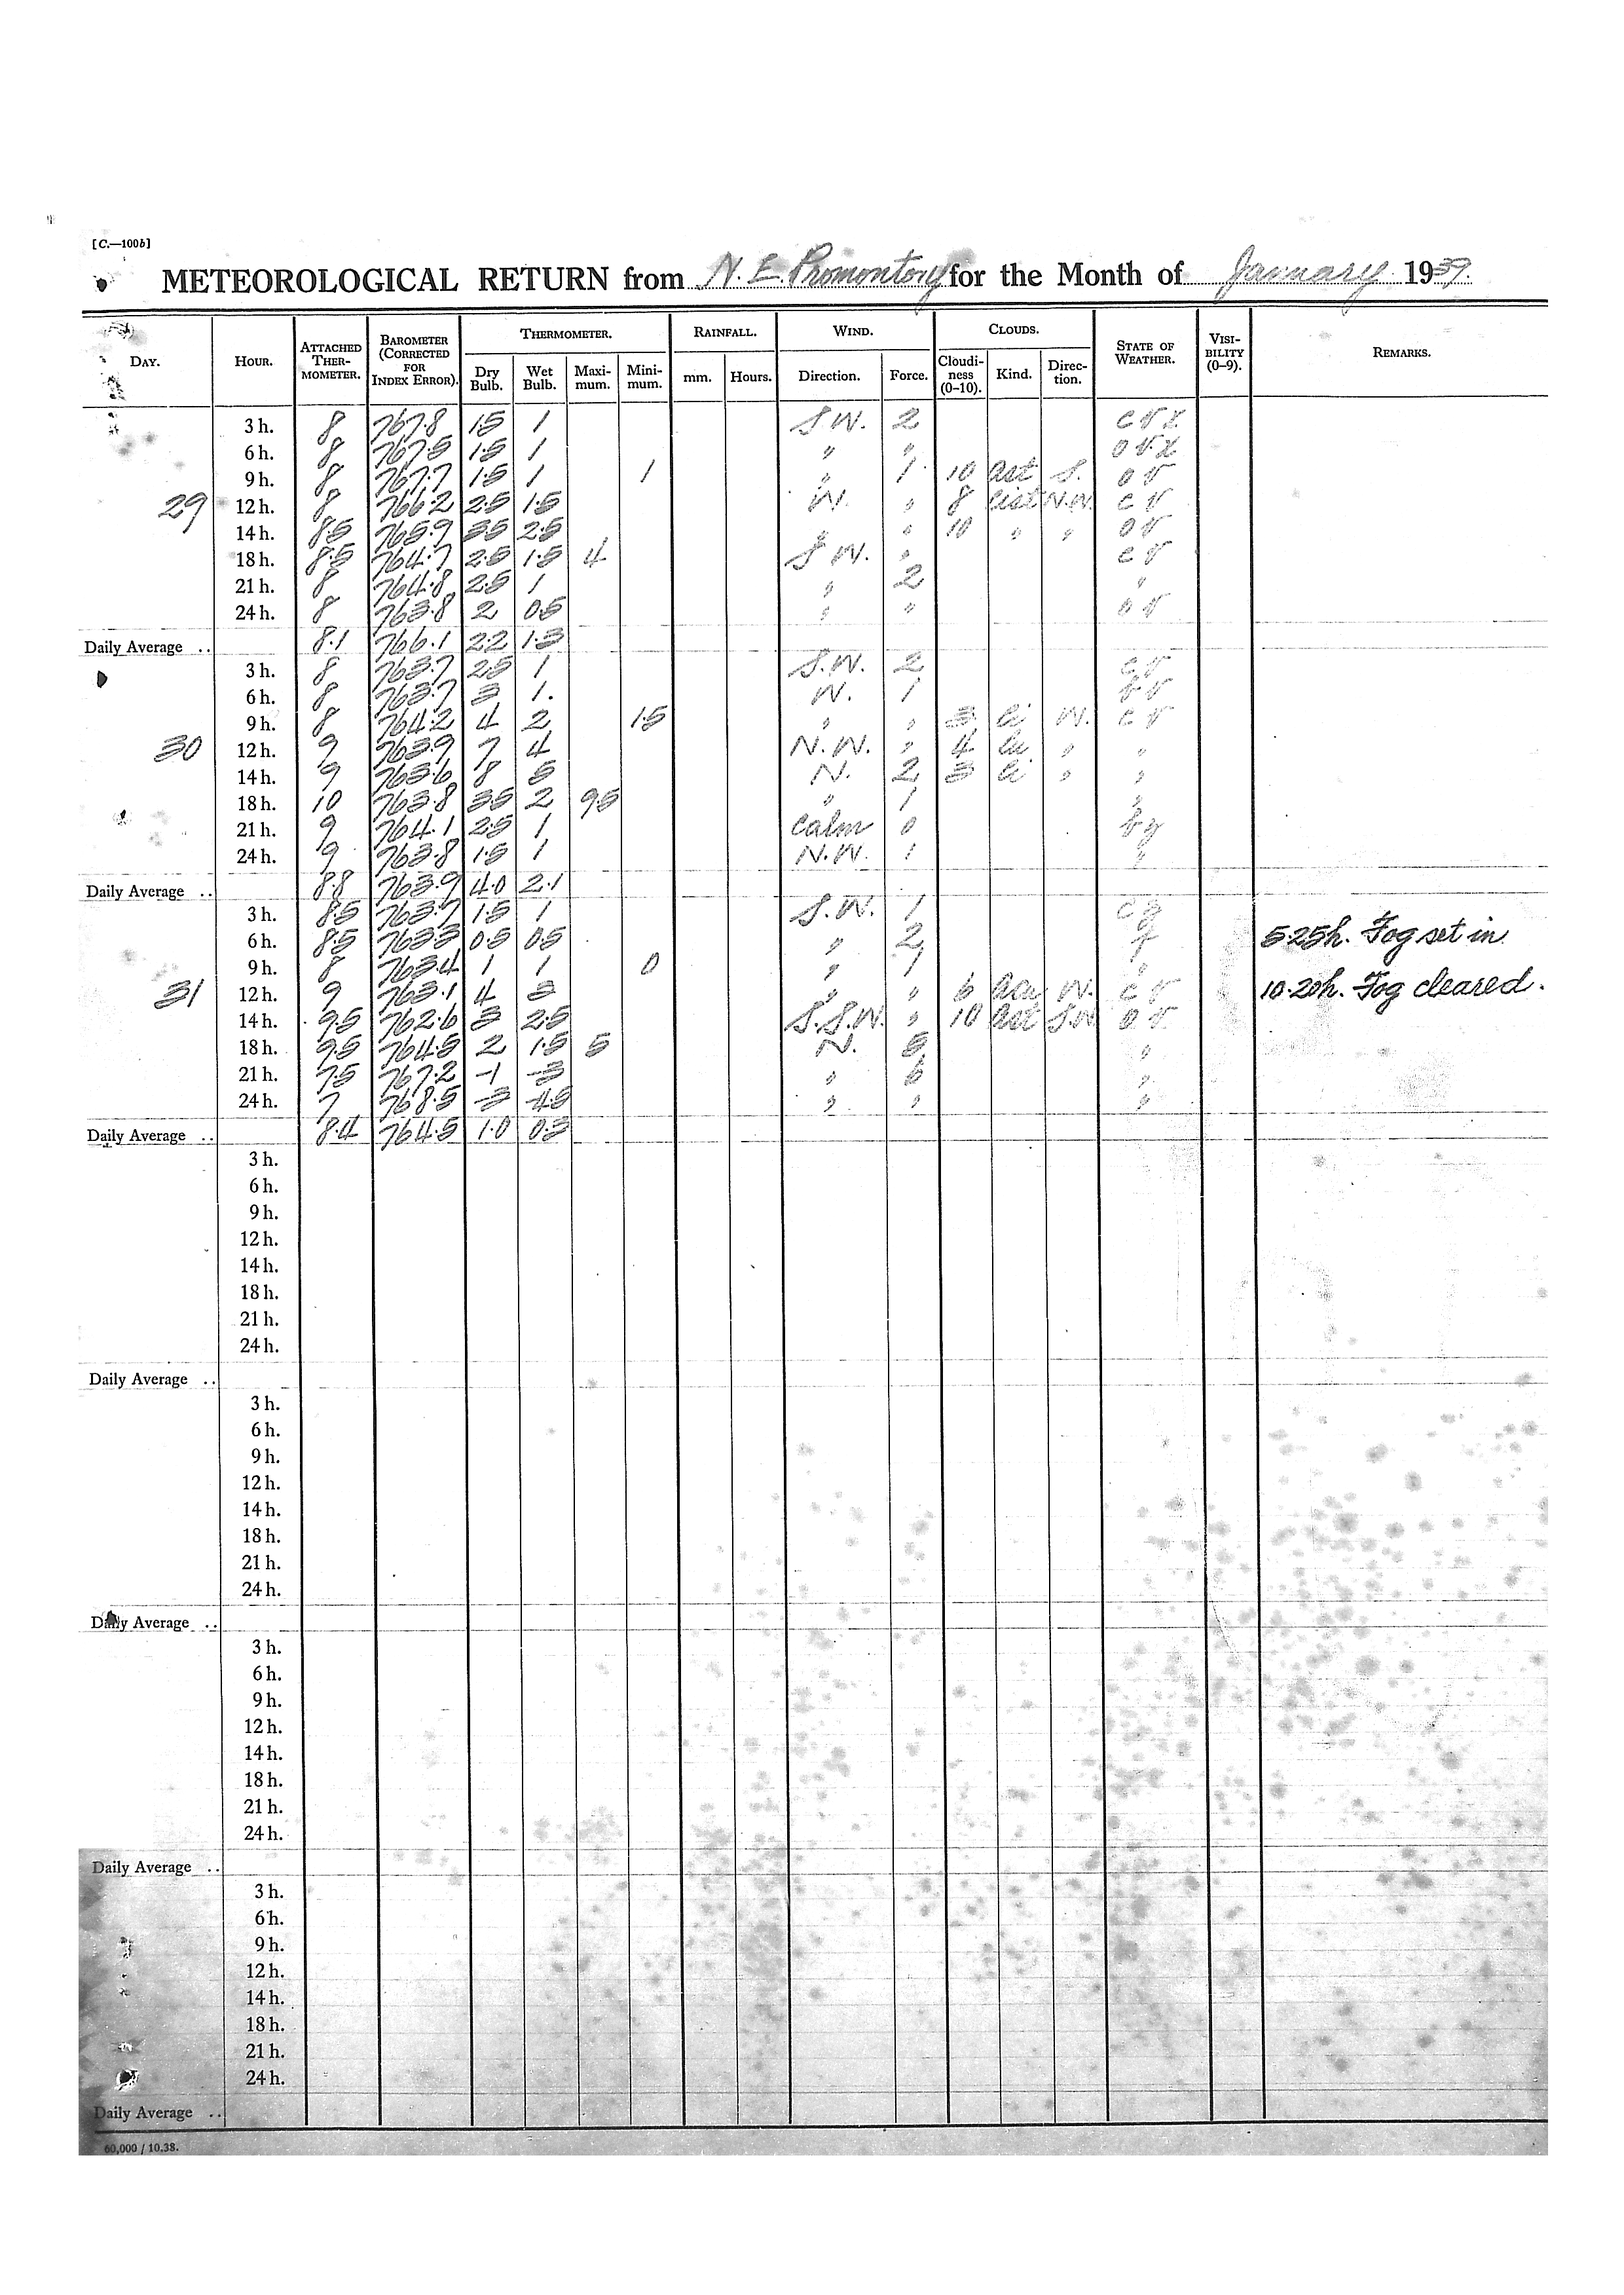 [C.—100b]
METEOROLOGICAL RETURN from N. E. Promontory for the Month of January 1939.
DAY. HOUR. ATTACHED THER- MOMETER. BAROMETER (CORRECTED FOR INDEX ERROR). THERMOMETER. RAINFALL. WIND. CLOUDS. STATE OF WEATHER. VISI- BILITY (0–9). REMARKS.
Dry Bulb. Wet Bulb. Maxi- mum. Mini- mum. mm. Hours. Direction. Force. Cloudi- ness (0–10). Kind. Direc- tion.
3 h. 8 767.8 1.5 1 S.W. 2 c v z
6 h. 8 767.5 1.5 1 " " o v z
9 h. 8 767.7 1.5 1 1 " 1 10 Ast S. o v
29 12 h. 8 766.2 2.5 1.5 W. " 8 Cist N.W. c v
14 h. 8.5 765.9 3.5 2.5 " " 10 " " o v
18 h. 8.5 764.7 2.5 1.5 4 S.W. " c v
21 h. 8 764.8 2.5 1 " 2 "
24 h. 8 763.8 2 0.5 " " o v
Daily Average .. 8.1 766.1 2.2 1.3
3 h. 8 763.7 2.5 1 S.W. 2 c v
6 h. 8 763.7 3 1. W. 1 b v
9 h. 8 764.2 4 2 1.5 " " 3 Ci W. c v
30 12 h. 9 763.9 7 4 N.W. " 4 Cu " "
14 h. 9 763.6 8 5 N. 2 3 Ci " "
18 h. 10 763.8 3.5 2 9.5 " 1 "
21 h. 9 764.1 2.5 1 Calm 0 b y
24 h. 9 763.8 1.5 1 N.W. 1 "
Daily Average .. 8.8 763.9 4.0 2.1
3 h. 8.5 763.7 1.5 1 S.W. 1 c
6 h. 8.5 763.3 0.5 0.5 " 2 f 5.25h. Fog set in
9 h. 8 763.4 1 1 0 " 1 "
31 12 h. 9 763.1 4 3 " " 6 Acu W. c v 10.20h. Fog cleared.
14 h. 9.5 762.6 3 2.5 S.S.W. " 10 Ast S.W. o v
18 h. 9.5 764.5 2 1.5 5 N. 5 "
21 h. 7.5 767.2 -1 -3 " 6 "
24 h. 7 768.5 -3 -4.5 " " "
Daily Average .. 8.4 764.5 1.0 0.3
3 h.
6 h.
9 h.
12 h.
14 h.
18 h.
21 h.
24 h.
Daily Average ..
3 h.
6 h.
9 h.
12 h.
14 h.
18 h.
21 h.
24 h.
Daily Average ..
3 h.
6 h.
9 h.
12 h.
14 h.
18 h.
21 h.
24 h.
Daily Average ..
3 h.
6 h.
9 h.
12 h.
14 h.
18 h.
21 h.
24 h.
Daily Average ..
60,000 / 10.38.